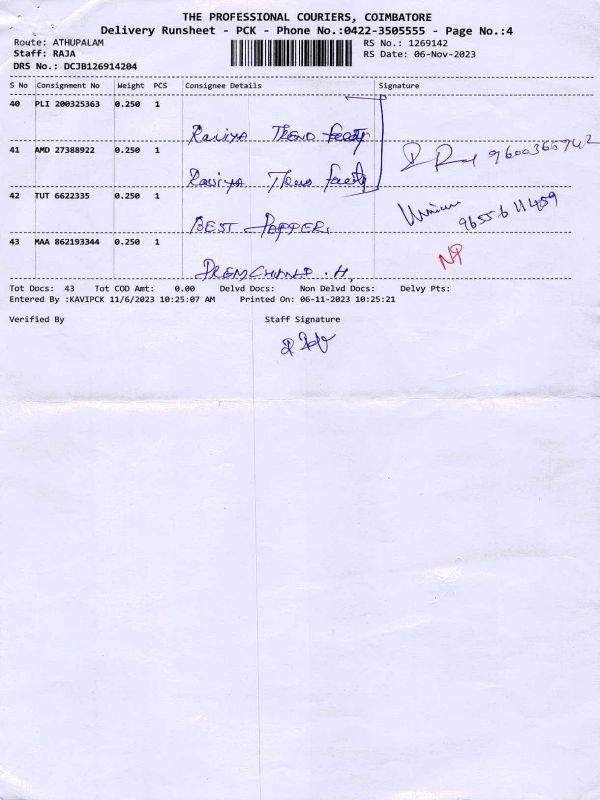 THE PROFESSIONAL COURIERS, COIMBATORE
Delivery Runsheet - PCK - Phone No.:0422-3505555 - Page No.:4
Route: ATHUPALAM RS No.: 1269142
Staff: RAJA RS Date: 06-Nov-2023
DRS No.: DCJB126914204
S No Consignment No Weight PCS Consignee Details Signature
40 PLI 200325363 0.250 1
Raviya Trend
41 AMD 27388922 0.250 1 9600366942
Raviya Trend
42 TUT 6622335 0.250 1 9655611459
BEST PAPPER.
43 MAA 862193344 0.250 1 NP
PREMCHAND . H.
Tot Docs: 43 Tot COD Amt: 0.00 Delvd Docs: Non Delvd Docs: Delvy Pts:
Entered By :KAVIPCK 11/6/2023 10:25:07 AM Printed On: 06-11-2023 10:25:21
Verified By Staff Signature